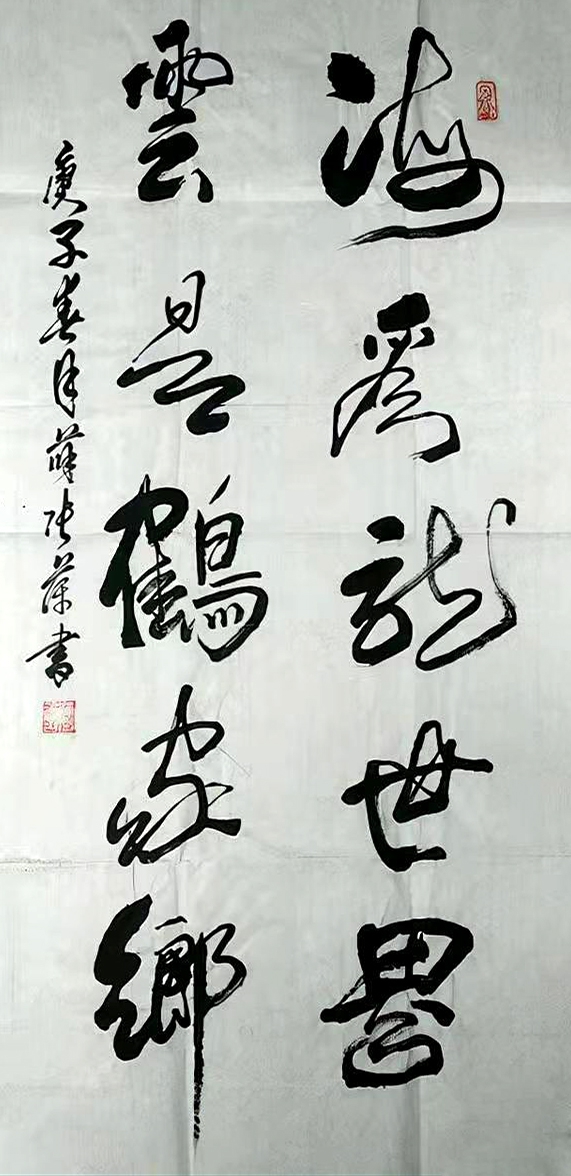 海為龍世界
雲是鶴家鄉
庚子春月薛張葆書